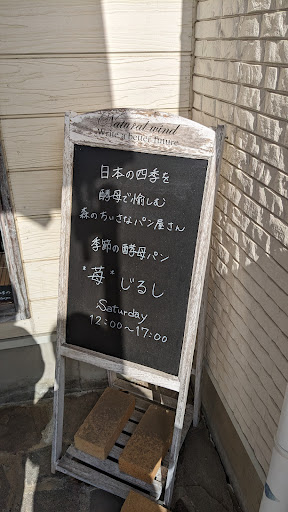 Natural wind
Write a better future
日本の四季を
酵母で愉しむ
森のちいさなパン屋さん
季節の酵母パン
"苺"じるし
Saturday
12:00〜17:00